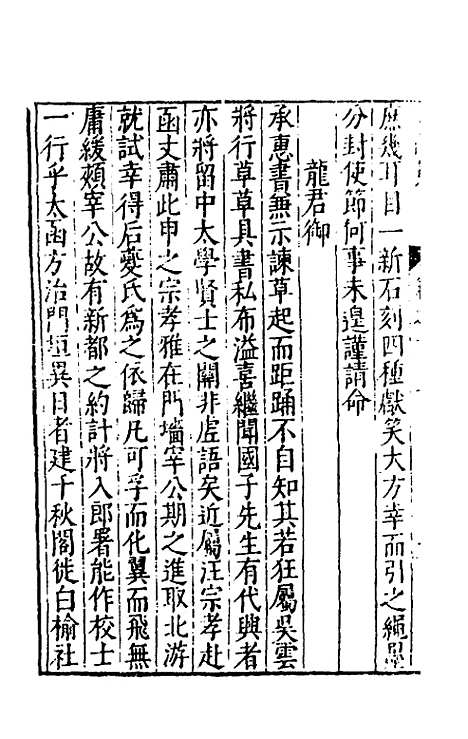 庶幾耳目一新石刻四種獻笑大方幸而引之繩墨
分封使節何事未遑謹請命
龍君御
承惠書無示諫草起而距踊不自知其若狂屬吳雲
將行草草具書私布溢喜繼聞國子先生有代興者
亦將留中太學賢士之關非虛語矣近屬汪宗孝赴
函丈肅此申之宗孝雅在門墻宰公期之進取北游
就試幸得后夔氏為之依歸凡可孚而化翼而飛無
庸緩頰宰公故有新都之約計將入郎署能作校士
一行乎太函方治門垣異日者建千秋閣徙白榆社